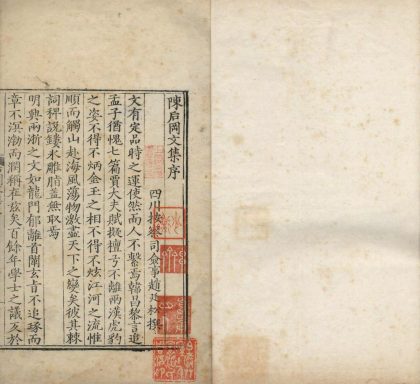 陳后岡文集序
四川按察司僉事趙廷松撰
文有定品時之運使然而人不繫焉韓昌黎言追
孟子猶愧七篇賈大夫賦擬檀弓不離兩漢虎豹
之姿不得不炳金玉之相不得不炫江河之流惟
順而觸山赴海風蕩物激盡天下之變矣彼其棘
詞稗說鏤氷雕脂蓋無取焉
明興兩浙之文如龍門郁離首闡玄音不追琢而
章不溟渤而潤稱在茲矣百餘年學士之議亥於